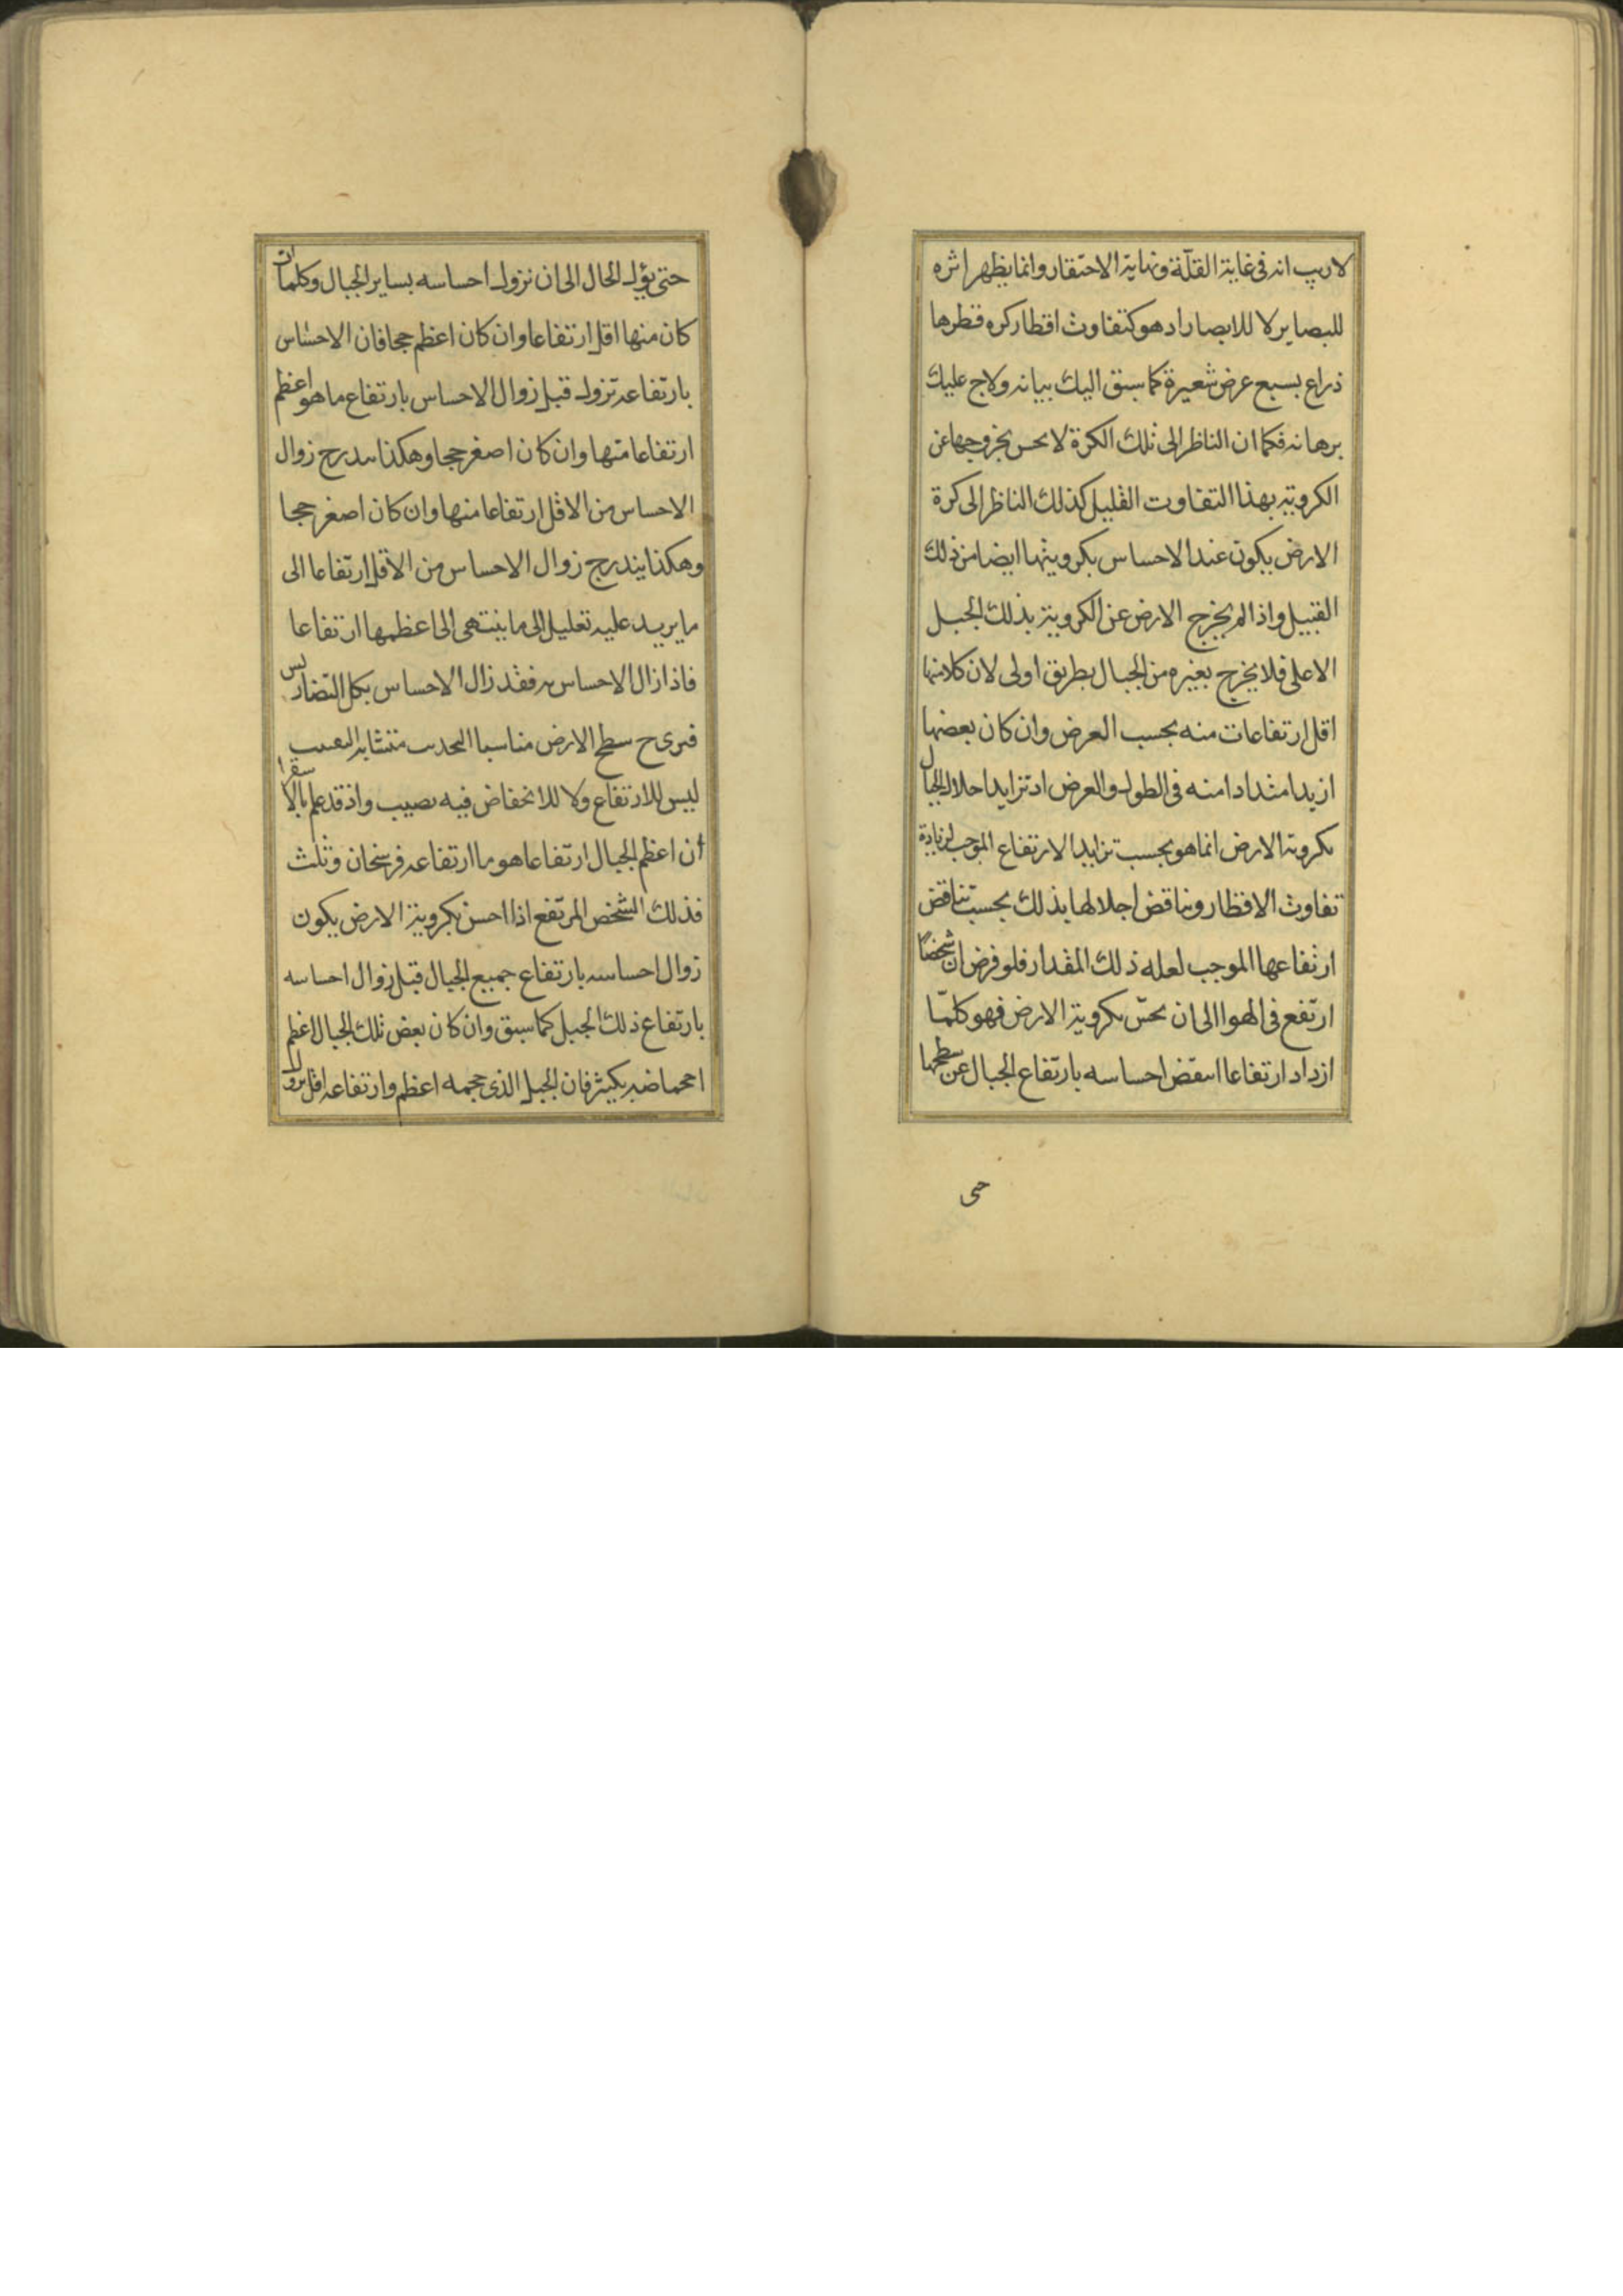 لاريب انه فى غاية القلّة ونهاية الاحتقار وانما يظهر اثره
للبصاير لا للابصار اد هو كتفاوت اقطار كره قطرها
ذراع بسبع عرض شعيرة كما سبق اليك بيانه ولاح عليك
برهانه فكما ان الناظر الى تلك الكرة لا يحس بخروجها عن
الكروية بهذا التفاوت القليل كذلك الناظر الى كرة
الارض يكون عند الاحساس بكرويتها ايضا من ذلك
القبيل واذا لم يخرج الارض عن الكروية بذلك الجبل
الاعلى فلا يخرج بغيره من الجبال بطريق اولى لان كلا منها
اقل ارتفاعات منه بحسب العرض وان كان بعضها
ازيد امتدادا منه فى الطول والعرض اد تزايد احلال الجبال
بكروية الارض انما هو بحسب تزايد الارتفاع الموجب لزيادة
تفاوت الاقطار وتناقض اجلالها بذلك بحسب تناقض
ارتفاعها الموجب لعله ذلك المقدار فلو فرض ان شخصًا
ارتفع فى الهوا الى ان يحسّ بكروية الارض فهو كلمّا
ازداد ارتفاعا اسقض احساسه بارتفاع الجبال عن سطحها
حى
حتى يؤل الحال الى ان نزول احساسه بساير الجبال وكلما ان
كان منها اقل ارتفاعا وان كان اعظم حجما فان الاحساس
بارتفاعه تزول قبل زوال الاحساس بارتفاع ما هو اعظم
ارتفاعا منها وان كان اصغر حجما وهكذا يندرج زوال
الاحساس من الاقل ارتفاعا منها وان كان اصغر حجما
وهكذا يندرج زوال الاحساس من الاقل ارتفاعا الى
ما يريد عليه تعليل الى ما ينتهى الى اعظمها ارتفاعا
فاذا زال الاحساس به فقد زال الاحساس بكل التضاريس
فيرى ح سطح الارض مناسبا التحدب متشابه
ليس للارتفاع ولا للانخفاض فيه نصيب واذ قد علم بالاسقرا
أن اعظم الجبال ارتفاعا هو ما ارتفاعه فرسخان وثلث
فذلك الشخص المرتفع اذا احسن بكروية الارض يكون
زوال احساسه بارتفاع جميع الجبال قبل زوال احساسه
بارتفاع ذلك الجبل كما سبق وان كان بعض تلك الجبال اعظم
بكثير فان الجبل الذى حجمه اعظم وارتفاعه اقل يزول